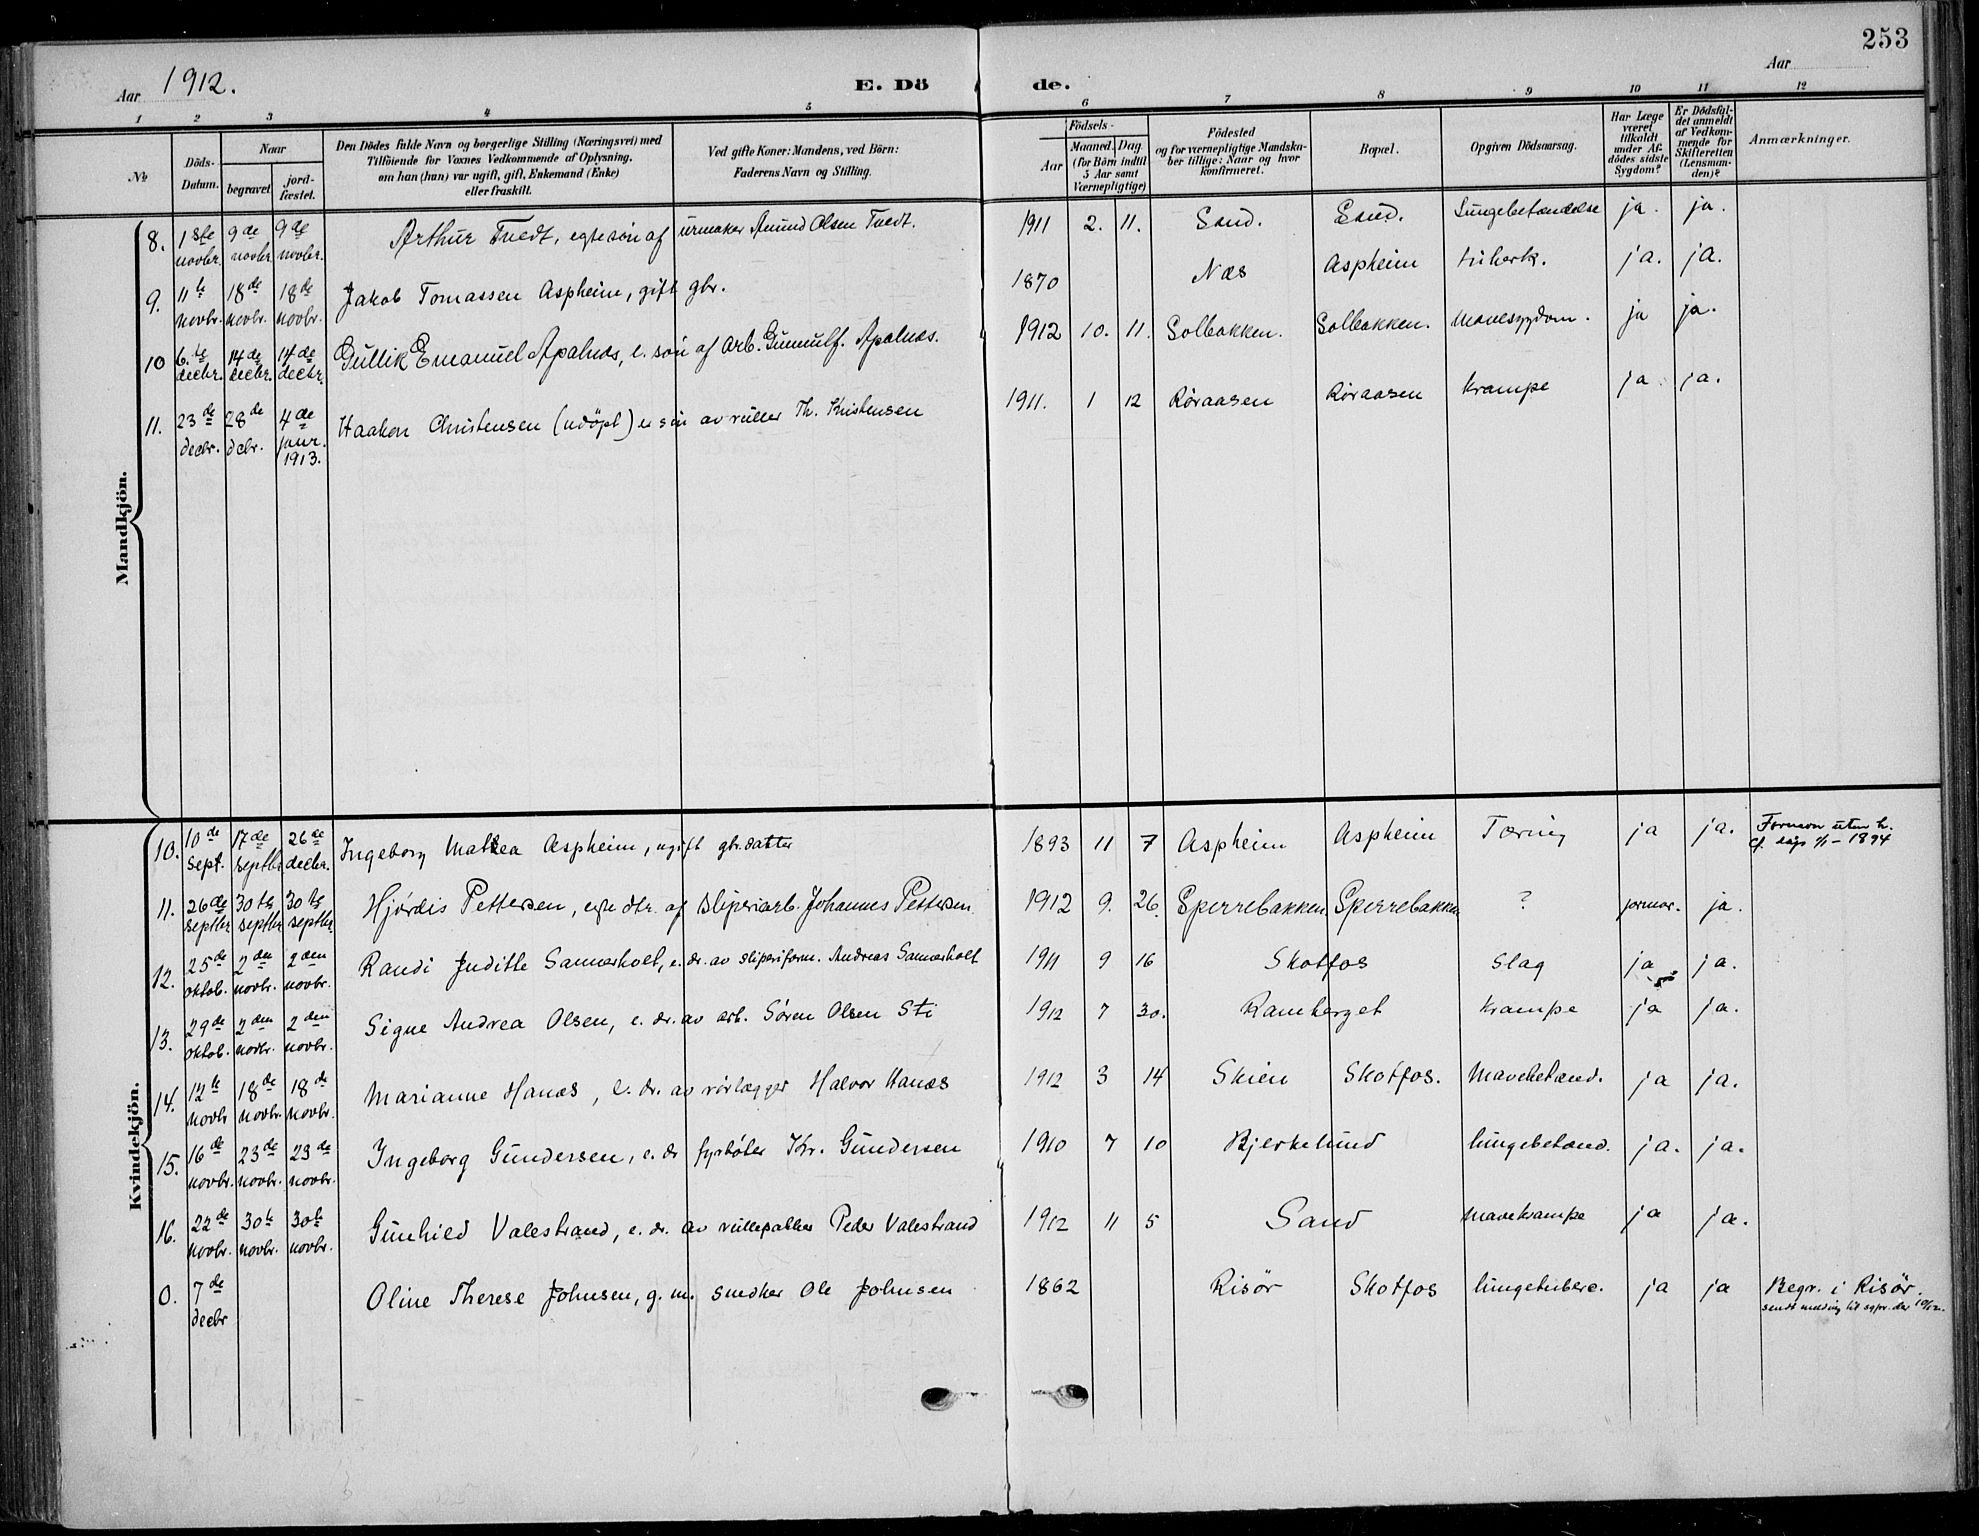 253
Aar 1912.
E. Dö
de.
Aar
1 2 3 4 5 6 7 8 9 10 11 12
№
Döds-
Datum.
Naar
begravet
jord-
fæstet.
Den Dödes fulde Navn og borgerlige Stilling (Næringsvei) med
Tilföiende for Voxnes Vedkommende af Oplysning,
om han (hun) var ugift, gift, Enkemand (Enke)
eller fraskilt.
Ved gifte Koner: Mandens, ved Börn:
Faderens Navn og Stilling.
Födsels-
Aar
Maaned. Dag.
(for Börn indtil
5 Aar samt
Værnepligtige)
Födested
og for værnepligtige Mandska-
ber tillige: Naar og hvor
konfirmeret.
Bopæl.
Opgiven Dödsaarsag.
Har Læge
været
tilkaldt
under Af-
dödes sidste
Sygdom?
Er Dödsfal-
det anmeldt
af Vedkom-
mende for
Skifteretten
(Lensman-
den)?
Anmærkninger.
Mandkjön.
8. 1ste novbr. 9de novbr. 9de novbr. Arthur Tvedt, egte søn af urmaker Amund Olsen Tvedt. 1911 2. 11. Sand. Sand. Lungebetændelse ja. ja.
9. 11te novbr. 18de novbr. 18de novbr. Jakob Tomassen Aspheim, gift gbr. 1870 Næs Aspheim tuberk. ja. ja.
10 6.te decbr. 14de decbr. 14de decbr. Gullik Emanuel Apalnæs, e. søn af Arb. Gunnulf. Apalnæs. 1912 10. 11. Solbakken. Solbakken. Mavesygdom. ja ja.
11. 23de decbr. 28de dcbr. 4de janr. 1913. Haakon Christensen (udöpt) e s av Th. Kristensen 1911. 1 12 Röraasen Röraasen Krampe ja ja.
Kvindekjön.
10. 10de sept. 17de septbr 26de decbr. Ingeborg Mathea Aspheim, ugift gbr.datter 1893 11 7 Aspheim Aspheim Tæring ja ja. 1894
11. 26de septbr 30te septbr 30te septbr. Hjördis Pettersen, egte dtr. af Sliperiarb. Johannes Pettersen. 1912 9. 26. Sperrebakken. Sperrebakken ? jormor. ja.
12. 25de oktob. 2den novbr. 2den novbr. Randi Juditte Sannerholt, e. dr. av sliperiform. Andreas Sannerholt 1911 9 16 Skotfos Slag ja ja.
13. 29de oktob. 2den novbr. 2den novbr. Signe Andrea Olsen, e. dr. av arb. Sören Olsen Sti 1912 7 30. Ramberget Krampe ja ja.
14. 12te novbr 18de novbr. 18de novbr. Marianne Hanæs, e. dr. av rörlægger Halvor Hanæs 1912 3 14 Skien Skotfos. Mavebetænd. ja ja.
15. 16de novbr. 23de novbr. 23de novbr. Ingeborg Gundersen, e. dr fyrböter Kr. Gundersen 1910 7 10 Bjerkelund lungebetænd. ja. ja.
16. 22de novbr. 30te novbr. 30te novbr. Gunhild Valestrand, e. dr. av rullepakker Peder Valestrand 1912 11 5 Sand Mavekrampe ja ja.
0. 7de decbr Oline Therese Johnsen, g. m. snedker Ole Johnsen 1862 Risör Skotfos lungetuberc. ja ja Begr. i Risör.
sendt melding til sgpr. der 10/12.